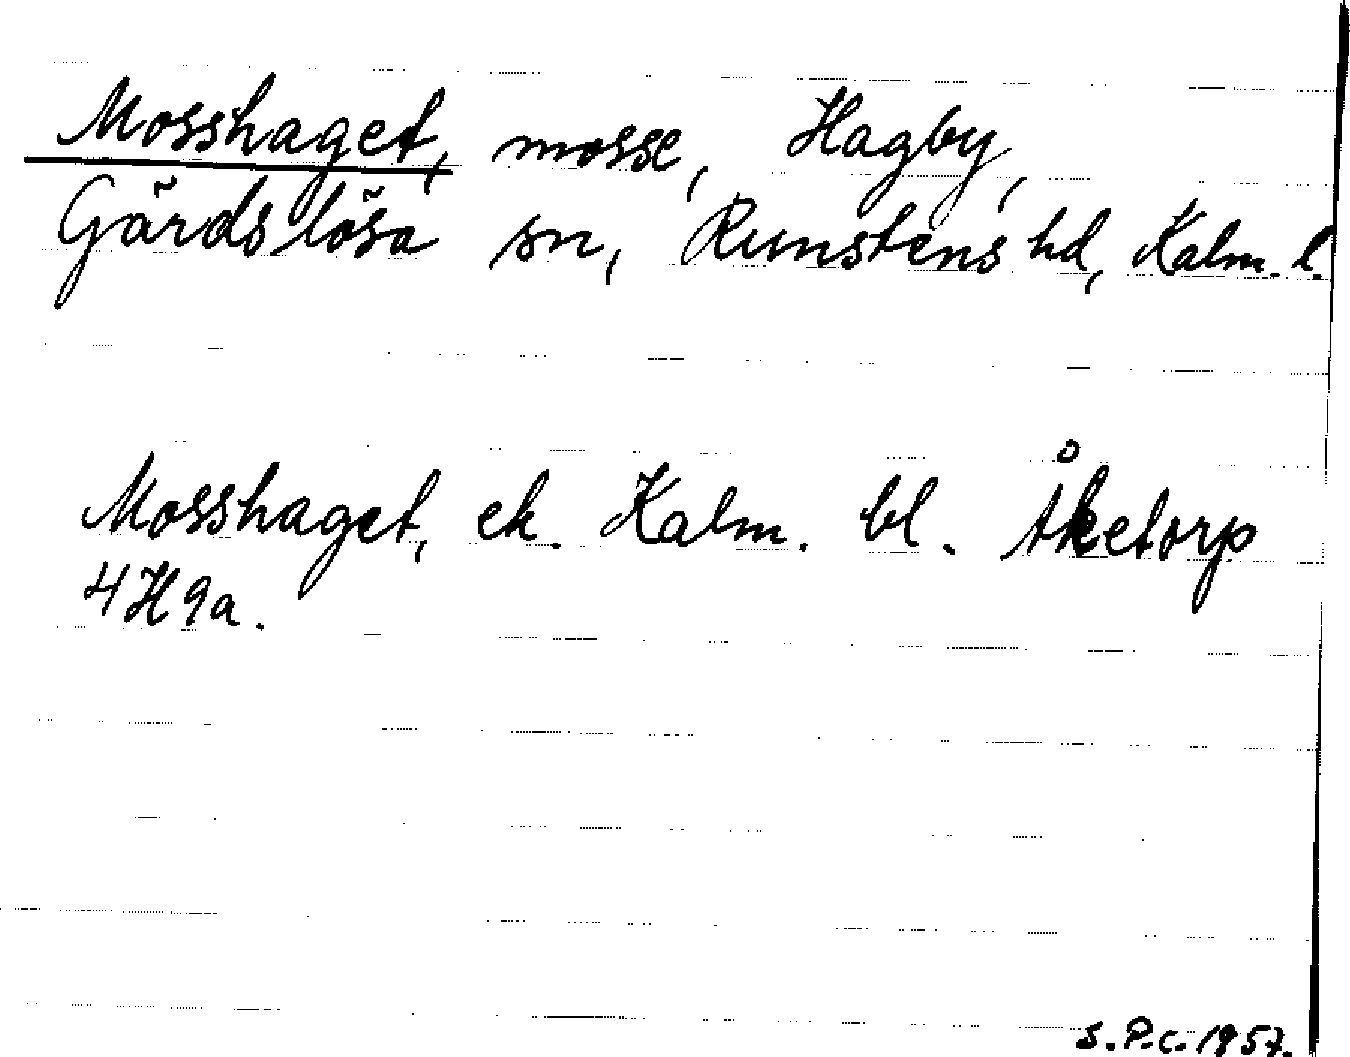 Mosshaget, mosse, Hagby,
Gärdslösa sn, Runstens hd, Kalm. l.
Mosshaget, ek. Kalm. bl. Åketorp
4H9a.
S.P.C. 1957.